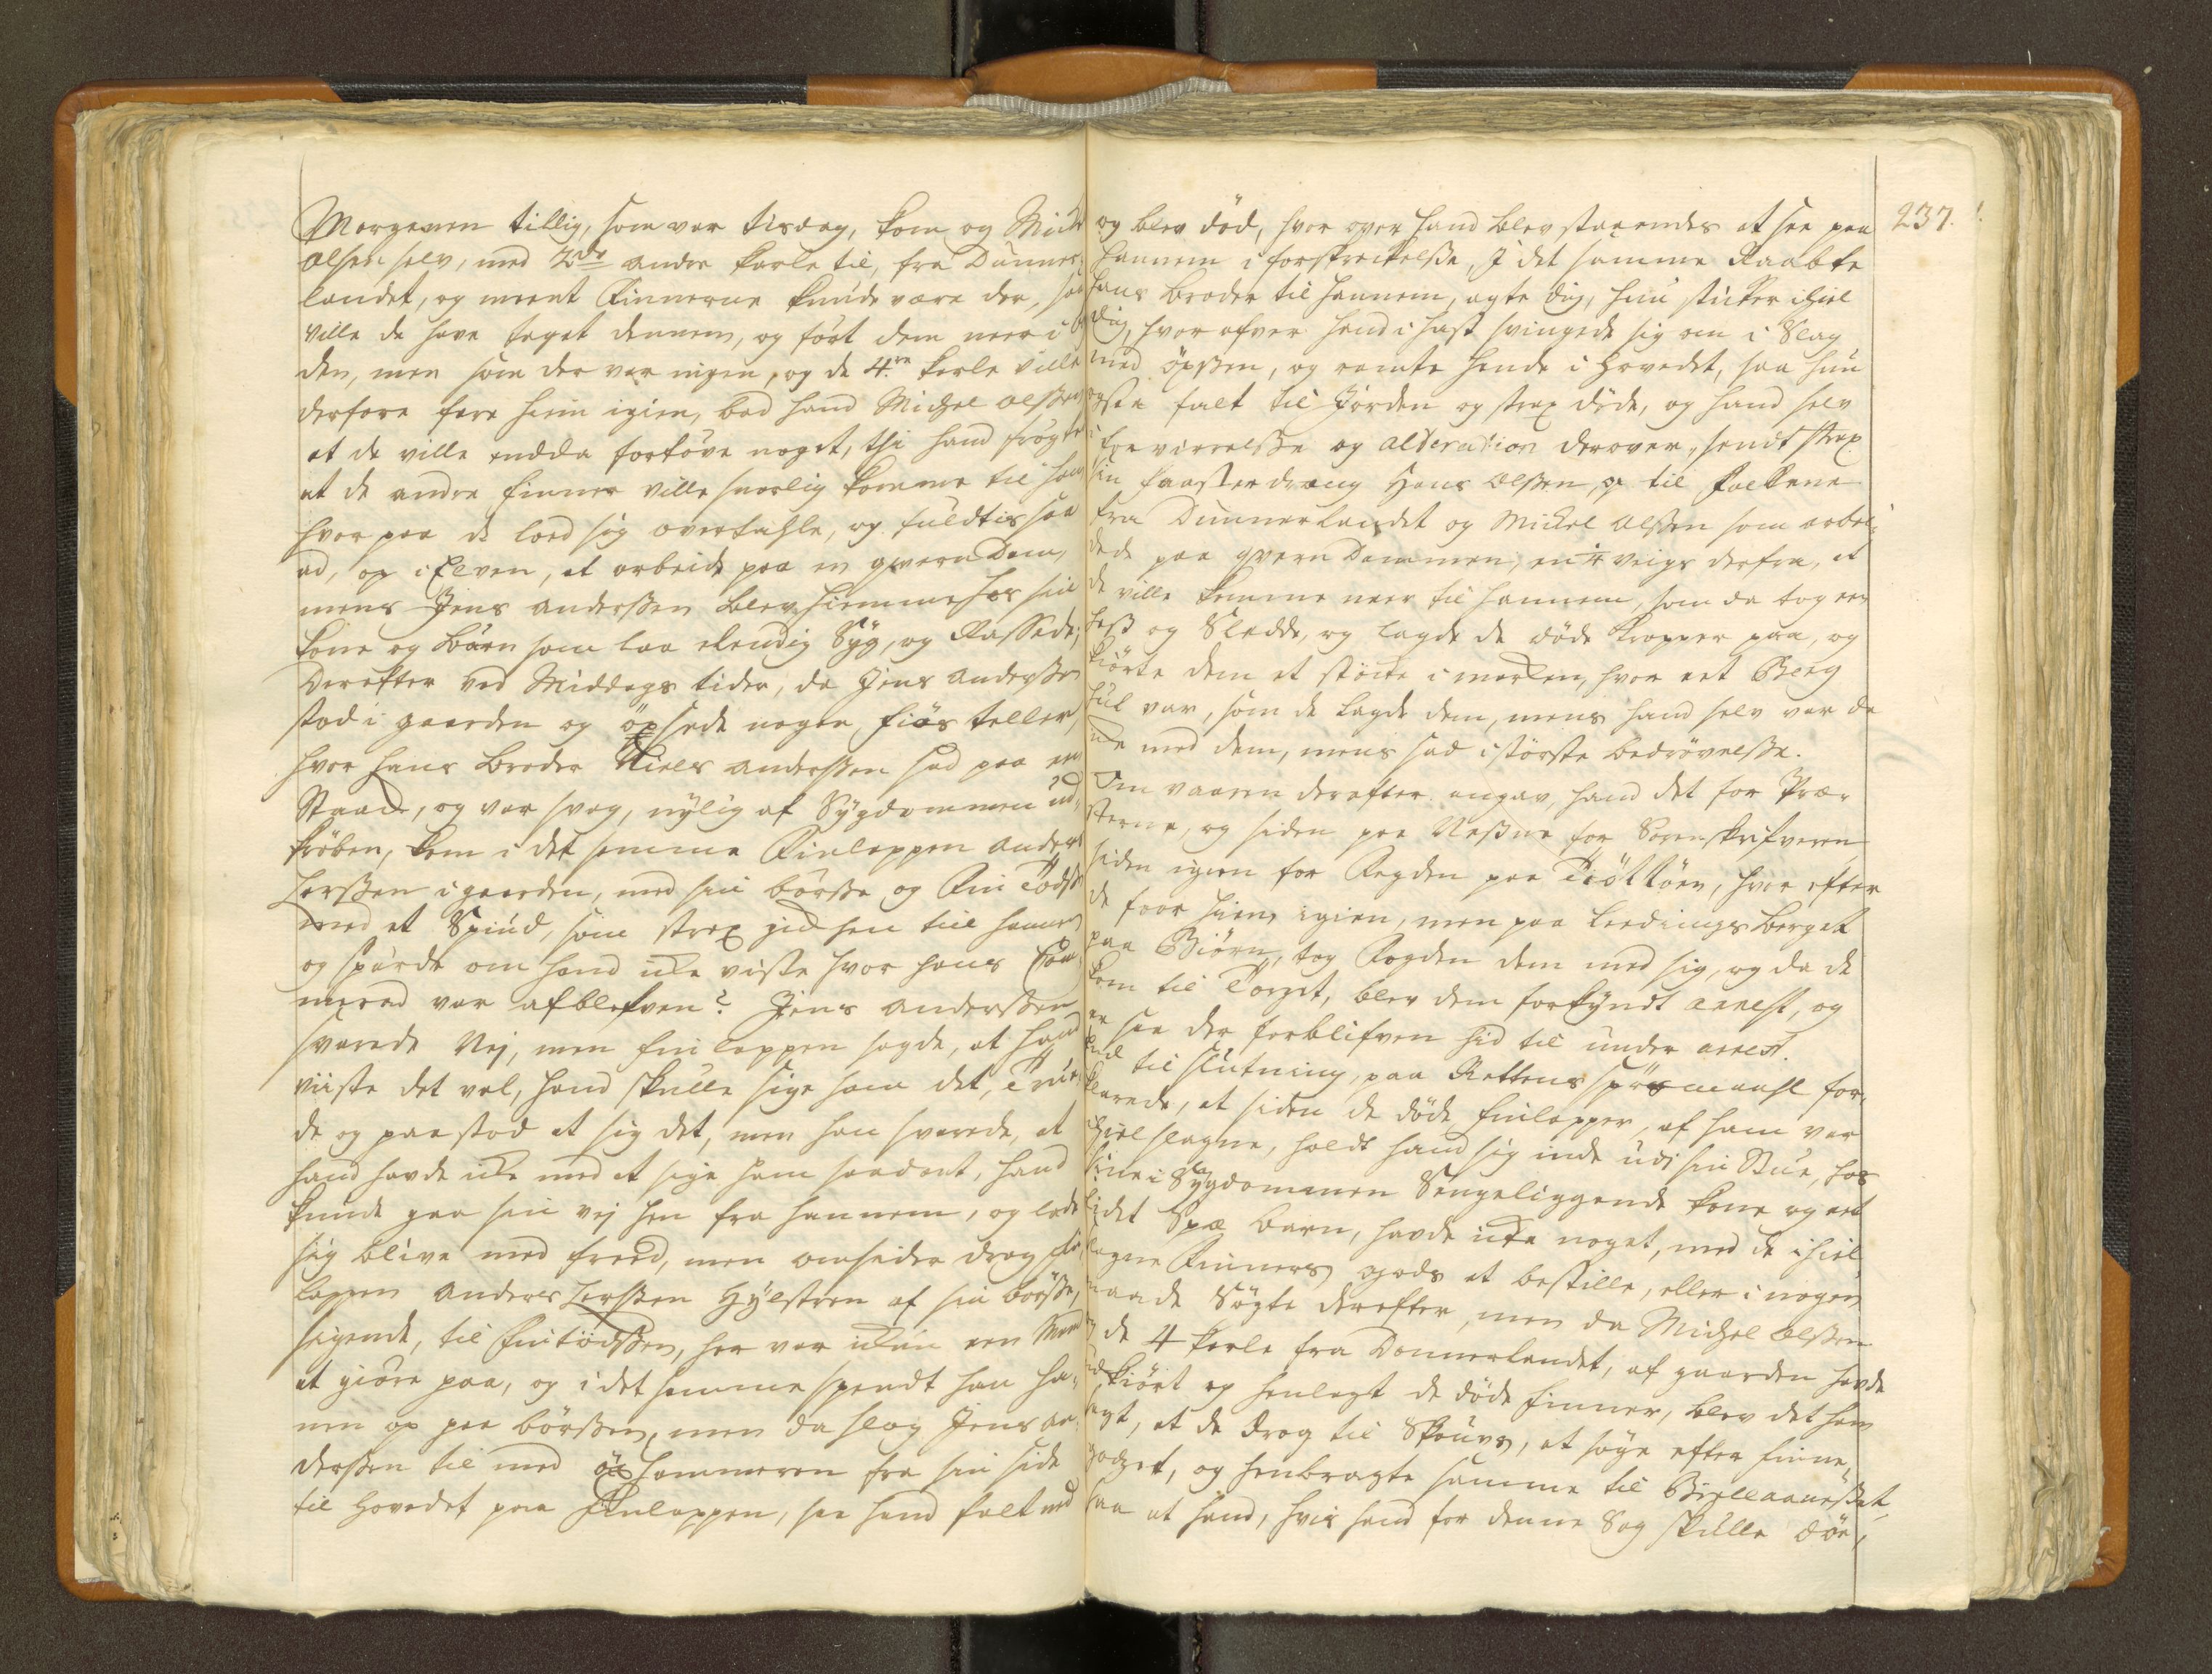 Morgenen tillig, som var tisdag, kom og Mich
olsen selv, med 2de andre karle til, fra Dünner-
landet, og meent Finnerne kunde være der, saa
ville de have taget dennem, og fört dem neer i 
den, men som der var ingen, og de 4re karle ville
derfore fare hiem igien, bad hand Michel olssen
at de ville endda fortöve noget, thi hand frögtede
at de andre finner ville snarlig komme til ham
hvor paa de lood sig overtahle, og fuldtis saa
ad, op i Elven, at arbeide paa en qvern Dam,
mens Jens anderssen blev hiemme hos sin
kone og börn som laa elendig Syg, og Rassede;
Derefter ved Middags tider, da Jens anderssen
stod i gaarden og öxsede nogen fiös teller,
hvor hans broder Niels anderssen sad paa en
Staad, og var svag, nylig af Sygdommen ud-
kröben, kom i det samme Finlappen anders
Larssen i gaarden, med sin börsse og Fin Tödssen
med et Spiüd, som strax gik hen til hannem
og spurde om hand icke viste hvor hans Cam-
merad var afblefven? Jens anderssen
svarede Nej, men finlappen sagde, at hand
viiste det vel, hand skulle sige ham det, True-
de og paastod at sig det, men han svarede, at
hand havde icke med at sige ham saadant, hand
kunde gaa sin vej hen fra hannem, og lade
sig blive med freed, men omsider drog fin-
lappen anders Larssen Hylstren af sin börsse,
sigende, til fintödssen, her var ickun een Mand
at giöre paa, og i det samme spendt han ha-
nen op paa börssen, men da slog Jens an-
derssen til med öxhammeren fra sin side
til hovedet paa finlappen, saa hand falt ned
237.
og blev död, hvor over hand blev staaendes at see paa
hannem i forskreckelsse, I det samme Raabte
hans broder til hannem, agte dig, hun sticker ihiel
dig, hvor ofver hand i hast svingede sig om i Slag
med öxssen, og ramte hende i hovedet, saa hun
ogsaa falt til Jorden og strax döde, og hand selv
i forvirrelsse og alteration derover, sendt strax
sin faasterdreng Hans olssen, op til folkene
fra Dünnerlandet og Mickel olssen som arbei-
dede paa qvern Dammen, en 1/4 veigs derfra, at
de ville komme neer til hannem, som da tog een
hest og Sledde, og lagde de döde kropper paa, og
kiörte dem et stöcke i marken, hvor eet Berg
hul var, som de lagde dem, mens hand selv var icke
med dem, mens sad i störste bedröfvelsse.
Om vaaren derefter angav hand det for Præ-
sterne, og siden paa Nessne for Sorenskrifveren
siden igien for Fogden paa Tiöttöen, hvor efter
de foor hiem igien, men paa Leedings Berget
paa Biörn, tog Fogden dem med sig, og da de
kom til Torget, blev dem forkyndt arrest, og
er saa der forblifven hid til under arrest.
End til slutning, paa Rettens spörsmaahl for-
klarede, at siden de döde finlapper, af ham var
ihiel slagne, holdt hand sig inde udi sin Stue, hos
sine i Sygdommen Sengeliggende kone og eet
lidet Spæ barn, havde icke noget, med de ihiel-
slagne Finners gods at bestille, eller i nogen
maade Sögte derefter, men da Michel olssen
og de 4 karle fra Donnerlandet, af gaarden havde
udkiört og henlagt de döde finner, blev det ham
sagt, at de drog til Skouvs, at söge efter finne-
godset, og henbragte samme til Biellaanesset,
saa at hand, hvis hand for denne Sag skulle döe,